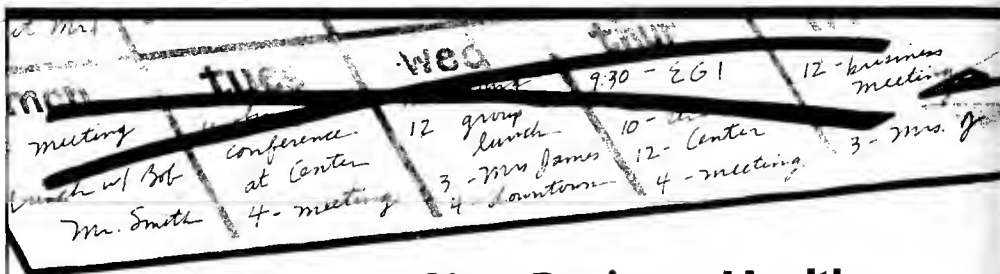 mon tues wed thur
meeting
lunch w/ Bob
Mr. Smith
conference
at Center
4 - meeting
12 group
lunch
3 - Mrs James
4 - downtown
9:30 - EGI
10 -
12 - Center
4 - meeting
12 - business
meeting
3 - Mrs. J